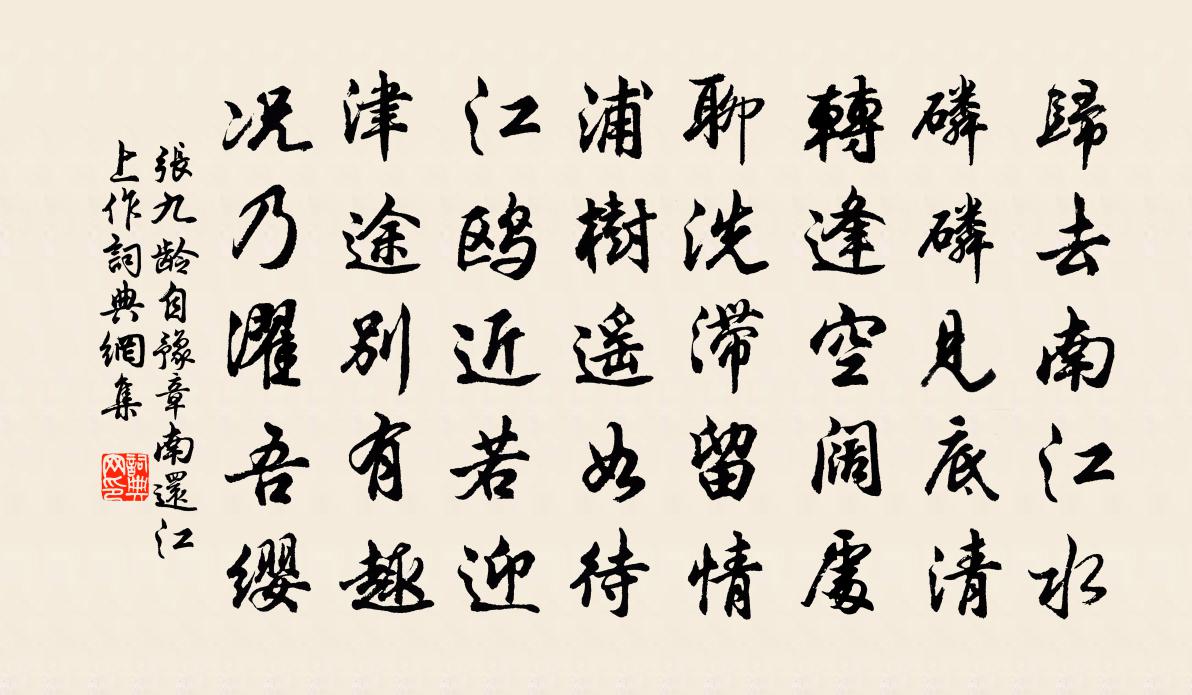 歸去南江水
磷磷見底清
轉逢空阔處
聊洗滯留情
浦樹遥如待
江鸥近若迎
津途别有趣
况乃濯吾缨
張九龄自豫章南還江
上作詞典網集
詞典網印